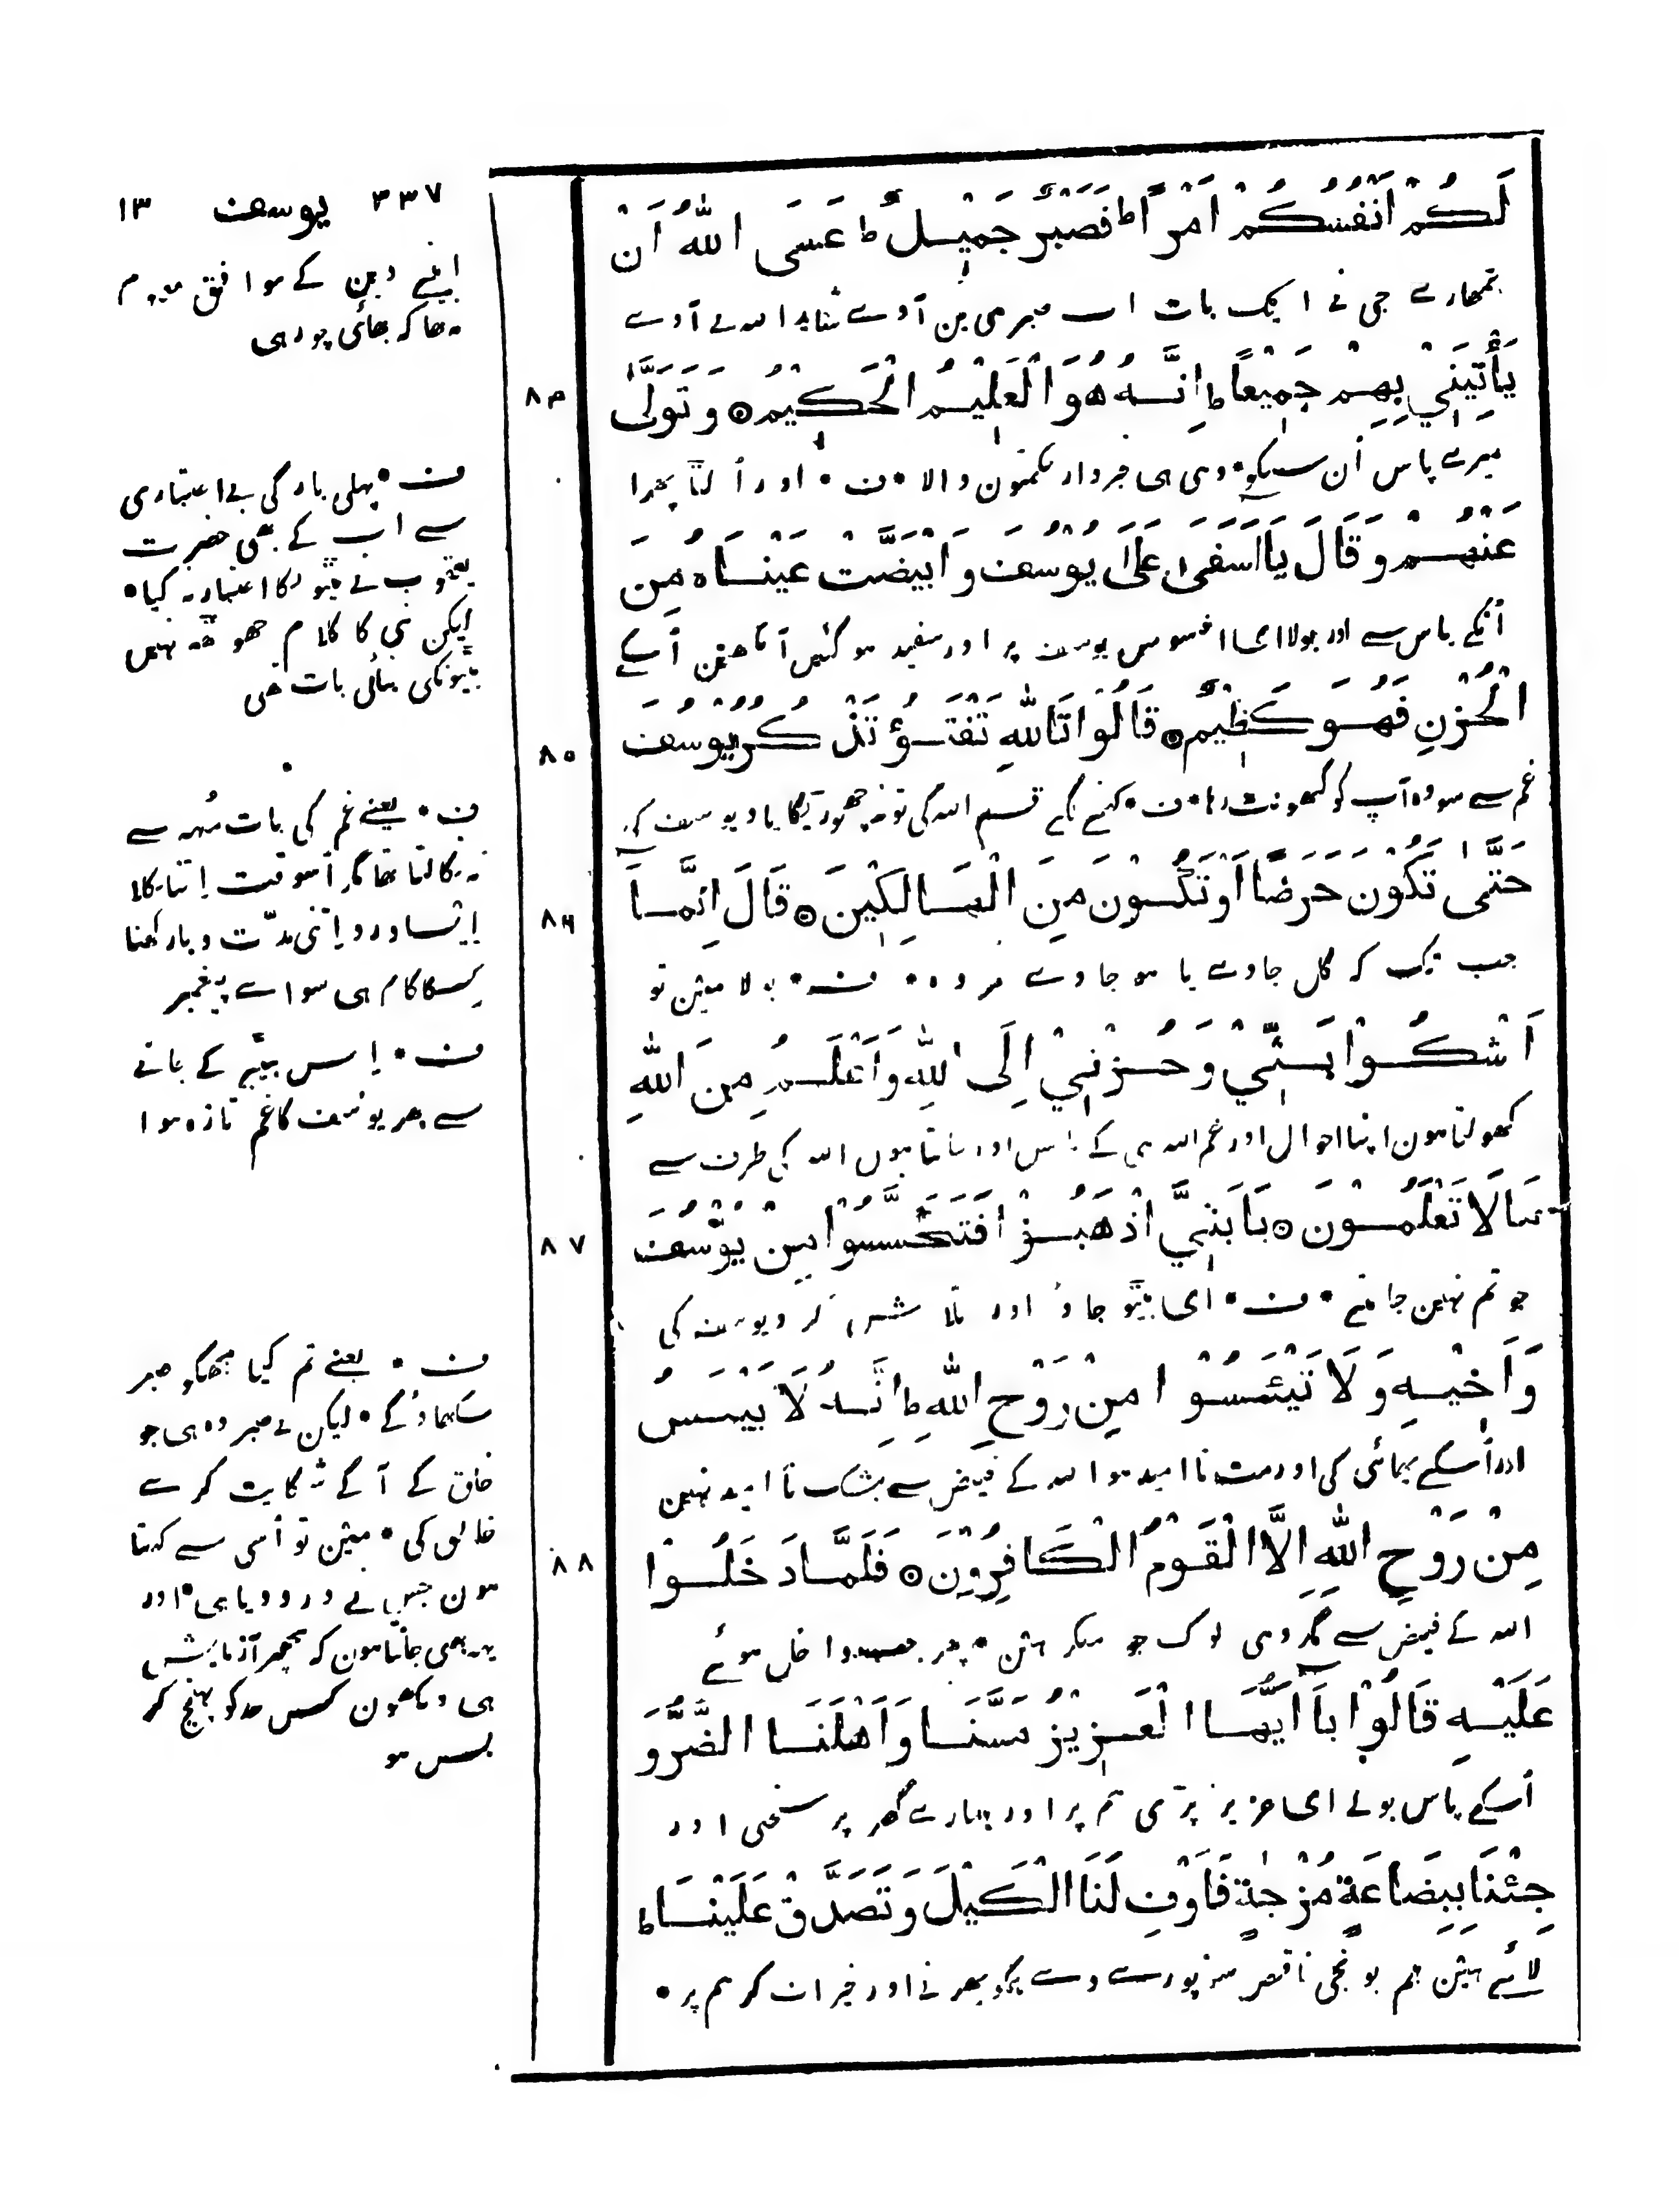 ۳۳۷ یوسف ۱۳
لَكُمْ أَنْفُسُكُمْ أَمْرًا ط فَصَبْرٌ جَمِيْلٌ ط عَسَى اللّٰهُ أَنْ
تمھارے جی نے ایک بات اب صبر هی بن آوے شاید الله لے آوے
يَأْتِيَنِيْ بِهِمْ جَمِيْعًا ط إِنَّهُ هُوَ الْعَلِيْمُ الْحَكِيْمُ ۝ وَتَوَلّٰى
۸۴
میرے پاس اُن سبکو • وهی هی خبردار حکمتون والا • ف • اور اُلٹا پھرا
عَنْهُمْ وَقَالَ يَا أَسَفٰى عَلٰى يُوْسُفَ وَابْيَضَّتْ عَيْنَاهُ مِنَ
اُنکے پاس سے اور بولا ای افسوس یوسف پر اور سفید هو گئیں آنکھین اُسکے
الْحُزْنِ فَهُوَ كَظِيْمٌ ۝ قَالُوْا تَاللّٰهِ تَفْتَؤُ تَذْكُرُ يُوْسُفَ
۸۵
غم سے سو وہ آپ کو گھونٹ رہا • ف • کہنے لگے قسم الله کی تو نہ چھوڑیگا یاد یوسف کی
حَتّٰى تَكُوْنَ حَرَضًا أَوْ تَكُوْنَ مِنَ الْهَالِكِيْنَ ۝ قَالَ إِنَّمَا
۸۶
جب تک کہ گل جاوے یا هو جاوے مردہ • ف • بولا مین تو
أَشْكُوْا بَثِّيْ وَحُزْنِيْ إِلَى اللّٰهِ وَأَعْلَمُ مِنَ اللّٰهِ
کھولتا هون اپنا احوال اور غم الله هی کے پاس اور جانتا هوں الله کی طرف سے
مَا لَا تَعْلَمُوْنَ ۝ يَا بَنِيَّ اذْهَبُوْا فَتَحَسَّسُوْا مِنْ يُوْسُفَ
۸۷
جو تم نہین جانتے • ف • ای بیٹو جاؤ اور تلاش کرو یوسف کی
وَأَخِيْهِ وَلَا تَيْئَسُوْا مِنْ رَوْحِ اللّٰهِ ط إِنَّهُ لَا يَيْئَسُ
اور اُسکے بھائی کی اور مت نا امید هو الله کے فیض سے بیشک نا امید نہین
مِنْ رَوْحِ اللّٰهِ إِلَّا الْقَوْمُ الْكَافِرُوْنَ ۝ فَلَمَّا دَخَلُوْا
۸۸
الله کے فیض سے مگر وهی لوگ جو منکر هین • پھر جب داخل هوئے
عَلَيْهِ قَالُوْا يَا أَيُّهَا الْعَزِيْزُ مَسَّنَا وَأَهْلَنَا الضُّرُّ وَ
اُسکے پاس بولے ای عزیز پڑی هم پر اور همارے گھر پر سختی اور
جِئْنَا بِبِضَاعَةٍ مُزْجٰةٍ فَأَوْفِ لَنَا الْكَيْلَ وَتَصَدَّقْ عَلَيْنَا ط
لائے هین هم پونجی ناقص سو پوری دے همکو بھرنی اور خیرات کر هم پر •
اپنے دین کے موافق
تھا کہ بھائی چور هی
ف • پہلی بار کی بے اعتباری
سے اب کے بھی حضرت
یعقوب نے بیٹونکا اعتبار نہ کیا •
لیکن نبی کا کلام جھوٹھ نہیں
بیٹونکی بنائی بات تھی
ف • یعنے غم کی بات مُنہہ سے
نہ نکالتا تھا مگر اُسوقت اِتنا نکلا
اِیسا درد اِتنی مدّت دبا رکھنا
کسکا کام هی سواے پیغمبر
ف • اِس بیٹے کے جانے
سے پھر یوسف کا غم تازہ هوا
ف • یعنے تم کیا مجھکو صبر
سکھاؤگے • لیکن بے صبر وہ هی جو
خلق کے آگے شکایت کرے
خالق کی • مین تو اُسی سے کہتا
هون جس نے درد دیا هی • اور
یہہ بھی جانتا هون کہ مجھپر آزمایش
هی دیکھون کس حد کو پہنچ کر
بس هو